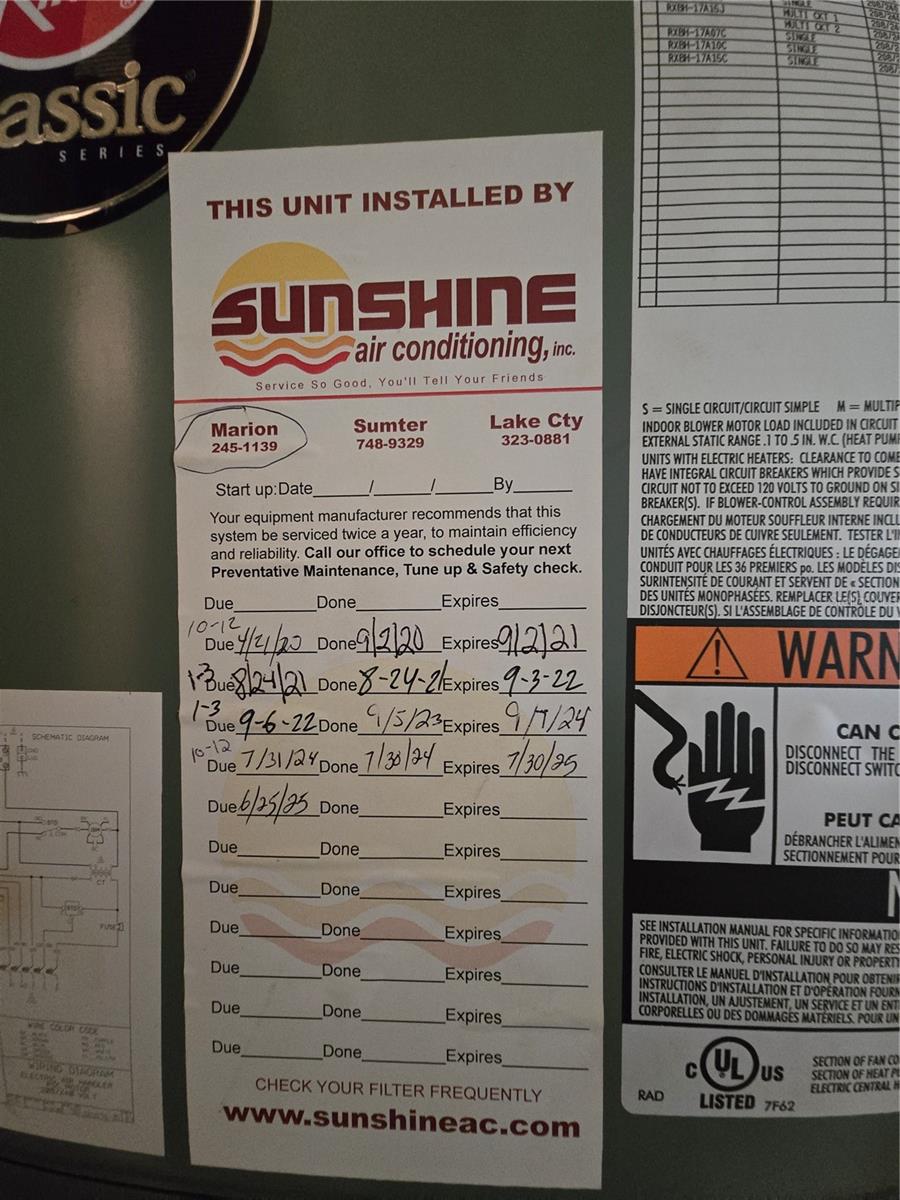 assic
SERIES
RXBH-17A15J SINGLE
MULTI CKT 1
MULTI CKT 2
RXBH-17A07C SINGLE
RXBH-17A10C SINGLE
RXBH-17A15C SINGLE
THIS UNIT INSTALLED BY
SUNSHINE
air conditioning, inc.
Service So Good, You'll Tell Your Friends
Marion Sumter Lake Cty
245-1139 748-9329 323-0881
Start up:Date / / By
Your equipment manufacturer recommends that this
system be serviced twice a year, to maintain efficiency
and reliability. Call our office to schedule your next
Preventative Maintenance, Tune up & Safety check.
Due Done Expires
10-12
Due 4/21/20 Done 9/2/20 Expires 9/2/21
1-3 Due 8/24/21 Done 8-24-21 Expires 9-3-22
1-3
Due 9-6-22 Done 9/5/23 Expires 9/7/24
10-12
Due 7/31/24 Done 7/30/24 Expires 7/30/25
Due 6/25/25 Done Expires
Due Done Expires
Due Done Expires
Due Done Expires
Due Done Expires
Due Done Expires
Due Done Expires
CHECK YOUR FILTER FREQUENTLY
www.sunshineac.com
S = SINGLE CIRCUIT/CIRCUIT SIMPLE M = MULTIP
INDOOR BLOWER MOTOR LOAD INCLUDED IN CIRCUIT
EXTERNAL STATIC RANGE .1 TO .5 IN. W.C. (HEAT PUM
UNITS WITH ELECTRIC HEATERS: CLEARANCE TO COM
HAVE INTEGRAL CIRCUIT BREAKERS WHICH PROVIDE S
CIRCUIT NOT TO EXCEED 120 VOLTS TO GROUND ON SI
BREAKER(S). IF BLOWER-CONTROL ASSEMBLY REQUIR
CHARGEMENT DU MOTEUR SOUFFLEUR INTERNE INCLU
DE CONDUCTEURS DE CUIVRE SEULEMENT. TESTER L'I
UNITÉS AVEC CHAUFFAGES ÉLECTRIQUES : LE DÉGAGE
CONDUIT POUR LES 36 PREMIERS po. LES MODÈLES DI
SURINTENSITÉ DE COURANT ET SERVENT DE « SECTION
DES UNITÉS MONOPHASÉES. REMPLACER LE(S) COUVER
DISJONCTEUR(S). SI L'ASSEMBLAGE DE CONTRÔLE DU V
WARN
CAN C
DISCONNECT THE
DISCONNECT SWITC
PEUT CA
DÉBRANCHER L'ALIMEN
SECTIONNEMENT POUR
SEE INSTALLATION MANUAL FOR SPECIFIC INFORMATIO
PROVIDED WITH THIS UNIT. FAILURE TO DO SO MAY RES
FIRE, ELECTRIC SHOCK, PERSONAL INJURY OR PROPERTY
CONSULTER LE MANUEL D'INSTALLATION POUR OBTENI
INSTRUCTIONS D'INSTALLATION ET D'OPÉRATION FOURN
INSTALLATION, UN AJUSTEMENT, UN SERVICE ET UN ENT
CORPORELLES OU DES DOMMAGES MATÉRIELS. POUR UN
C UL US
LISTED 7F62
RAD
SECTION OF FAN CO
SECTION OF HEAT PU
ELECTRIC CENTRAL H
SCHEMATIC DIAGRAM
FUSE
WIRE COLOR CODE
WIRING DIAGRAM